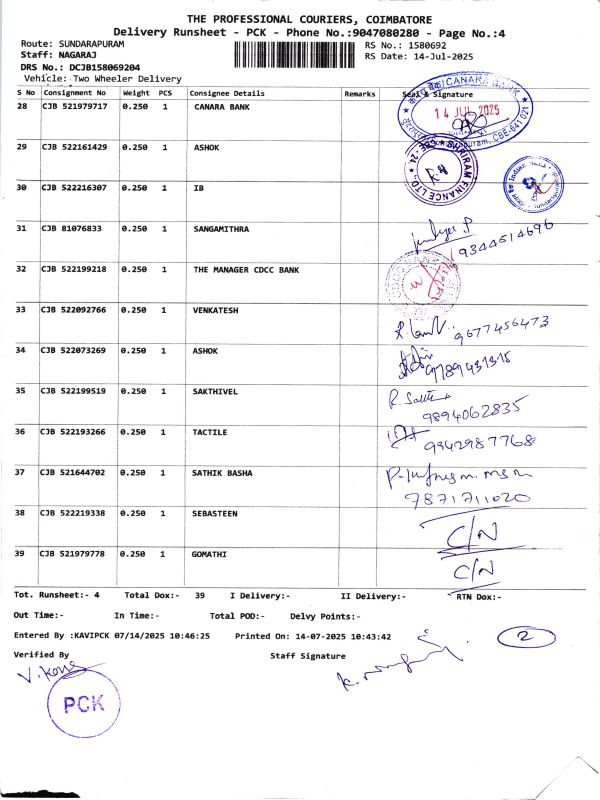 THE PROFESSIONAL COURIERS, COIMBATORE
Delivery Runsheet - PCK - Phone No.:9047080280 - Page No.:4
Route: SUNDARAPURAM RS No.: 1580692
Staff: NAGARAJ RS Date: 14-Jul-2025
DRS No.: DCJB158069204
Vehicle: Two Wheeler Delivery
S No Consignment No Weight PCS Consignee Details Remarks Seal & Signature
28 CJB 521979717 0.250 1 CANARA BANK
CANARA BANK
14 JUL 2025
CBE-641 021
29 CJB 522161429 0.250 1 ASHOK
SHRIRAM FINANCE LTD., CBE-24
30 CJB 522216307 0.250 1 IB
31 CJB 81076833 0.250 1 SANGAMITHRA
9344514696
32 CJB 522199218 0.250 1 THE MANAGER CDCC BANK
33 CJB 522092766 0.250 1 VENKATESH
9677456473
34 CJB 522073269 0.250 1 ASHOK
9789431315
35 CJB 522199519 0.250 1 SAKTHIVEL
9894062835
36 CJB 522193266 0.250 1 TACTILE
9942987768
37 CJB 521644702 0.250 1 SATHIK BASHA
7871711020
38 CJB 522219338 0.250 1 SEBASTEEN
C/N
39 CJB 521979778 0.250 1 GOMATHI
C/N
Tot. Runsheet:- 4 Total Dox:- 39 I Delivery:- II Delivery:- RTN Dox:-
Out Time:- In Time:- Total POD:- Delvy Points:-
Entered By :KAVIPCK 07/14/2025 10:46:25 Printed On: 14-07-2025 10:43:42
2
Verified By Staff Signature
PCK